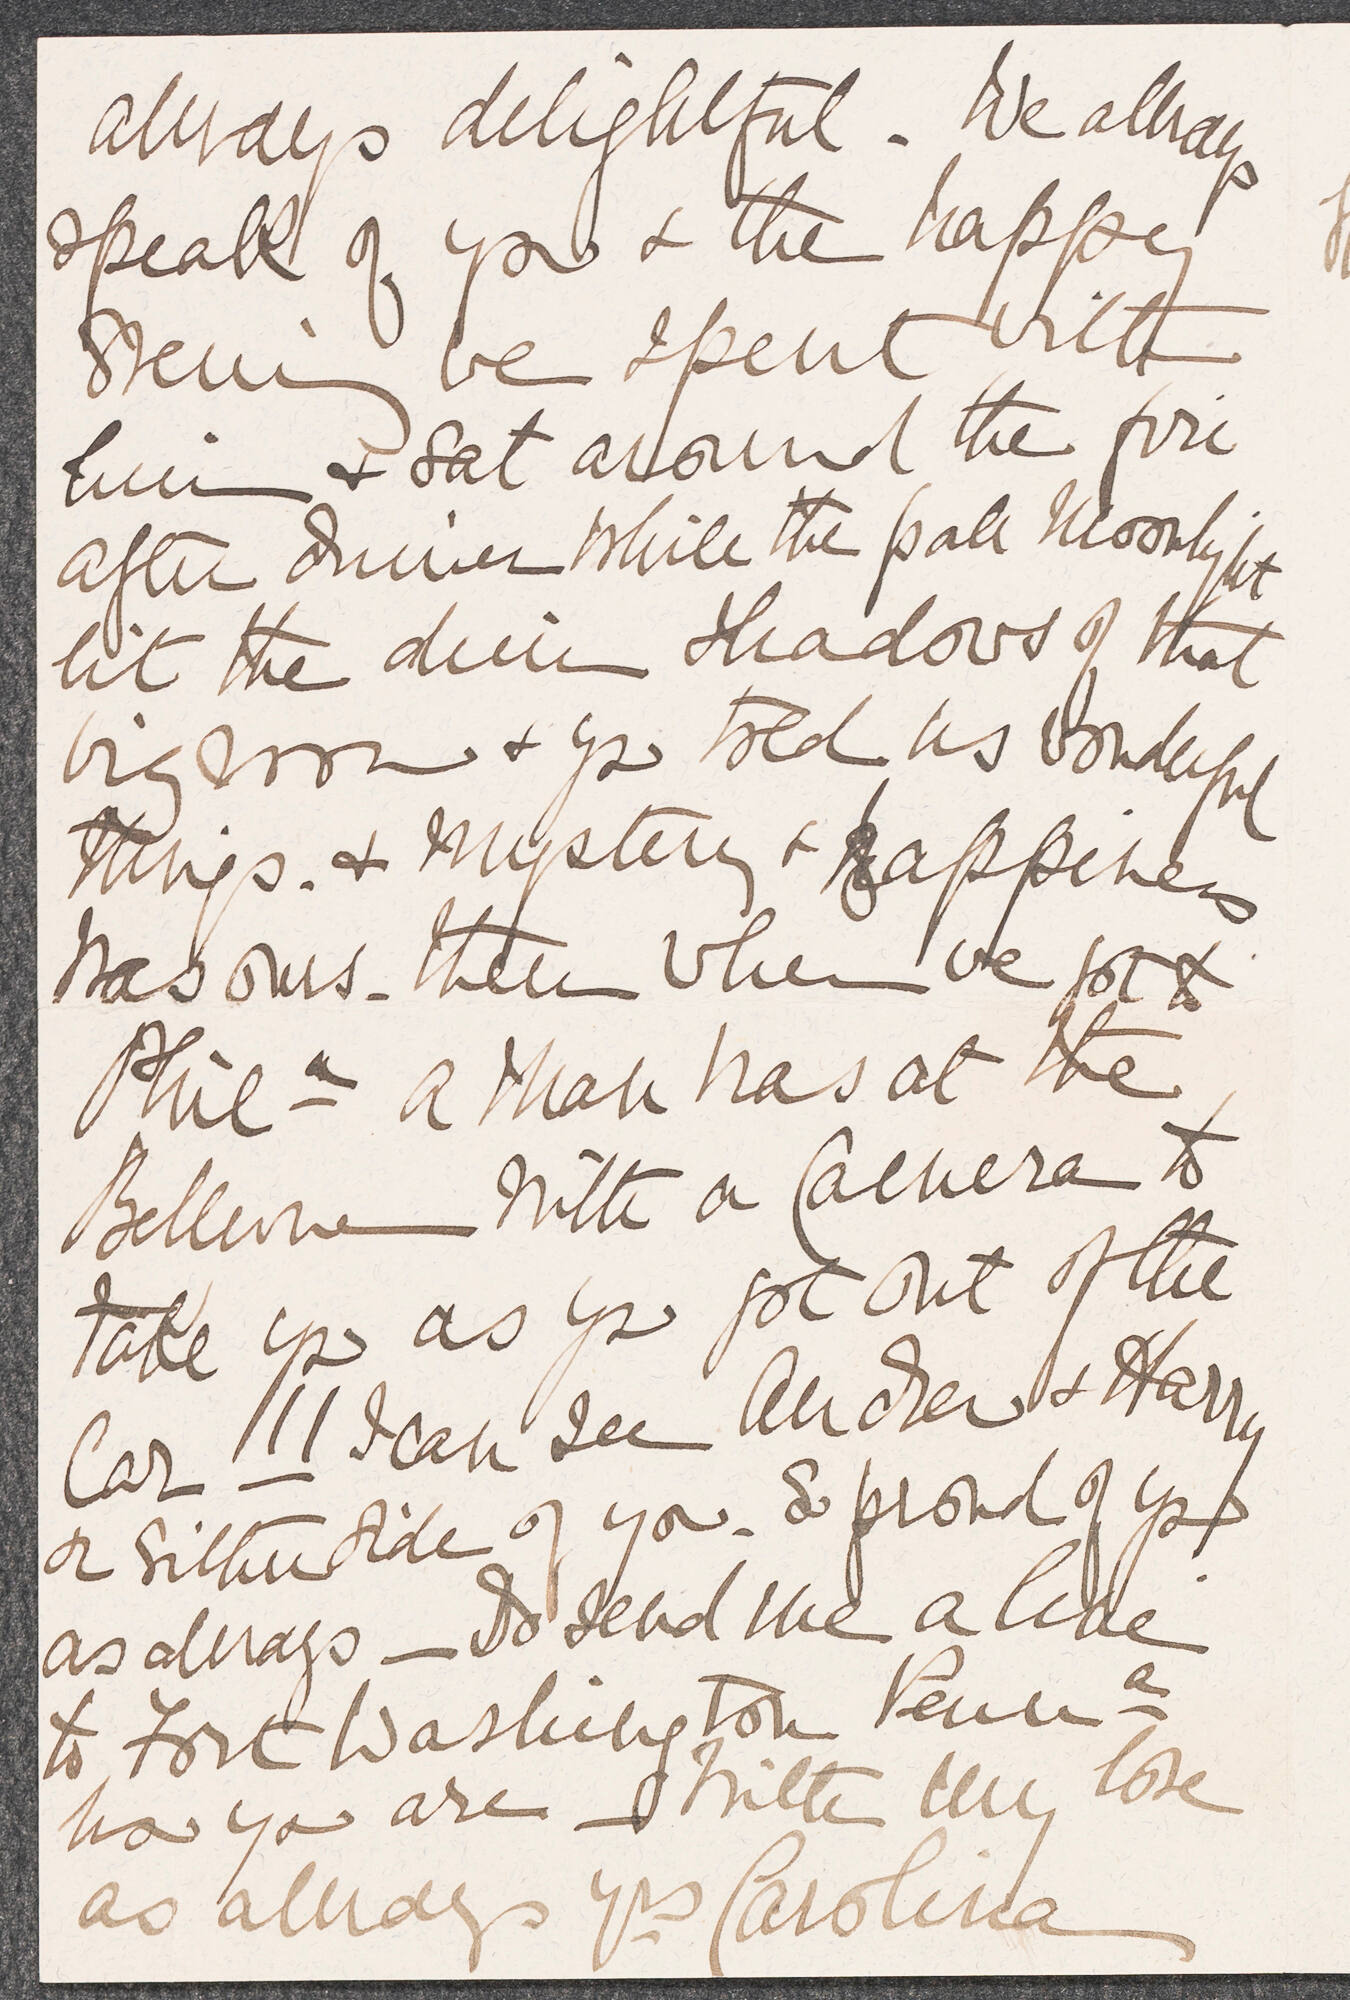 always delightful. We always
speak of you & the happy
Evening we spent with
him & sat around the fire
after dinner while the pale Moonlight
lit the dim shadows of that
big room & yo told us wonderful
things. & Mystery & happiness
was ours. Then when we got to
Phil<sup>a</sup> a Man was at the
Bellevue with a Camera to
take yo as yo got out of the
Car !!! I can see Andrew & Harry
on Either side of you. So proud of yo
as always — Do send me a line
to Fort Washington Penn<sup>a</sup>
how yo are — With my love
as always yrs Carolina